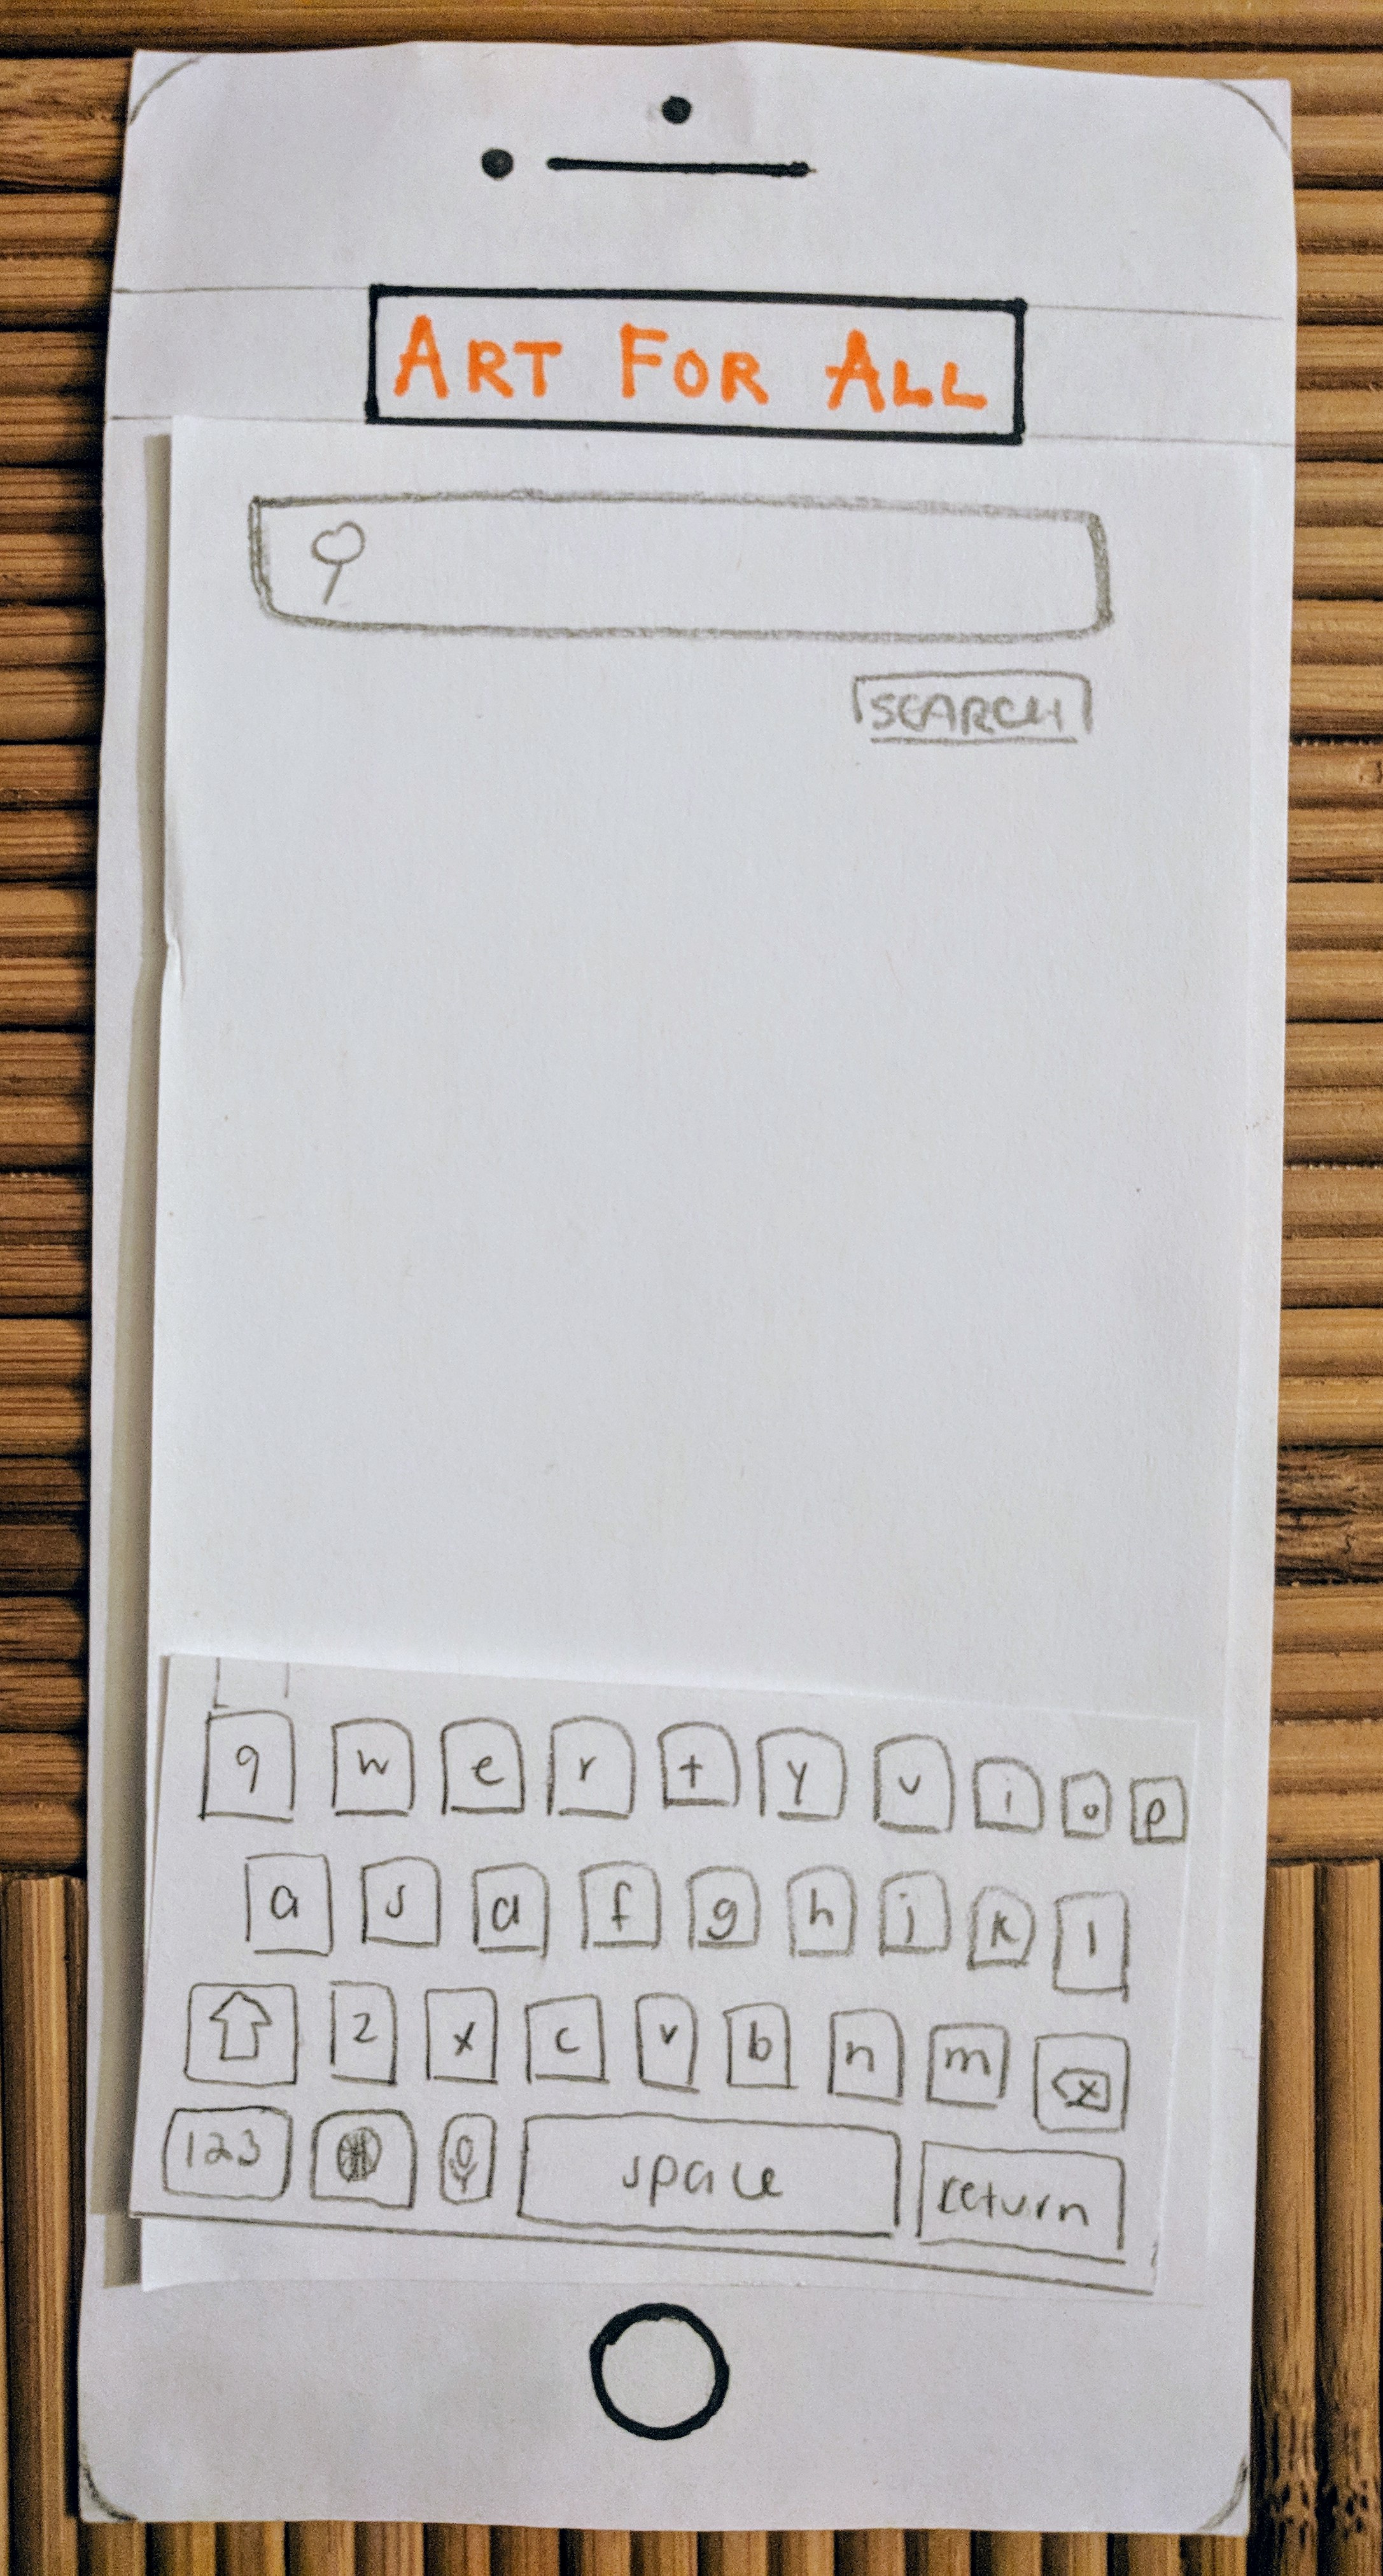 ART FOR ALL
SEARCH
q w e r t y u i o p
a s d f g h j k l
z x c v b n m
123 space return